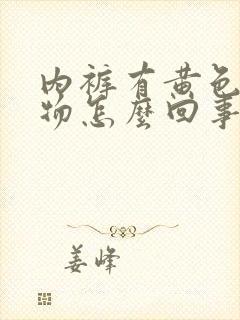 内裤有黄色
物怎麽回事
姜峰